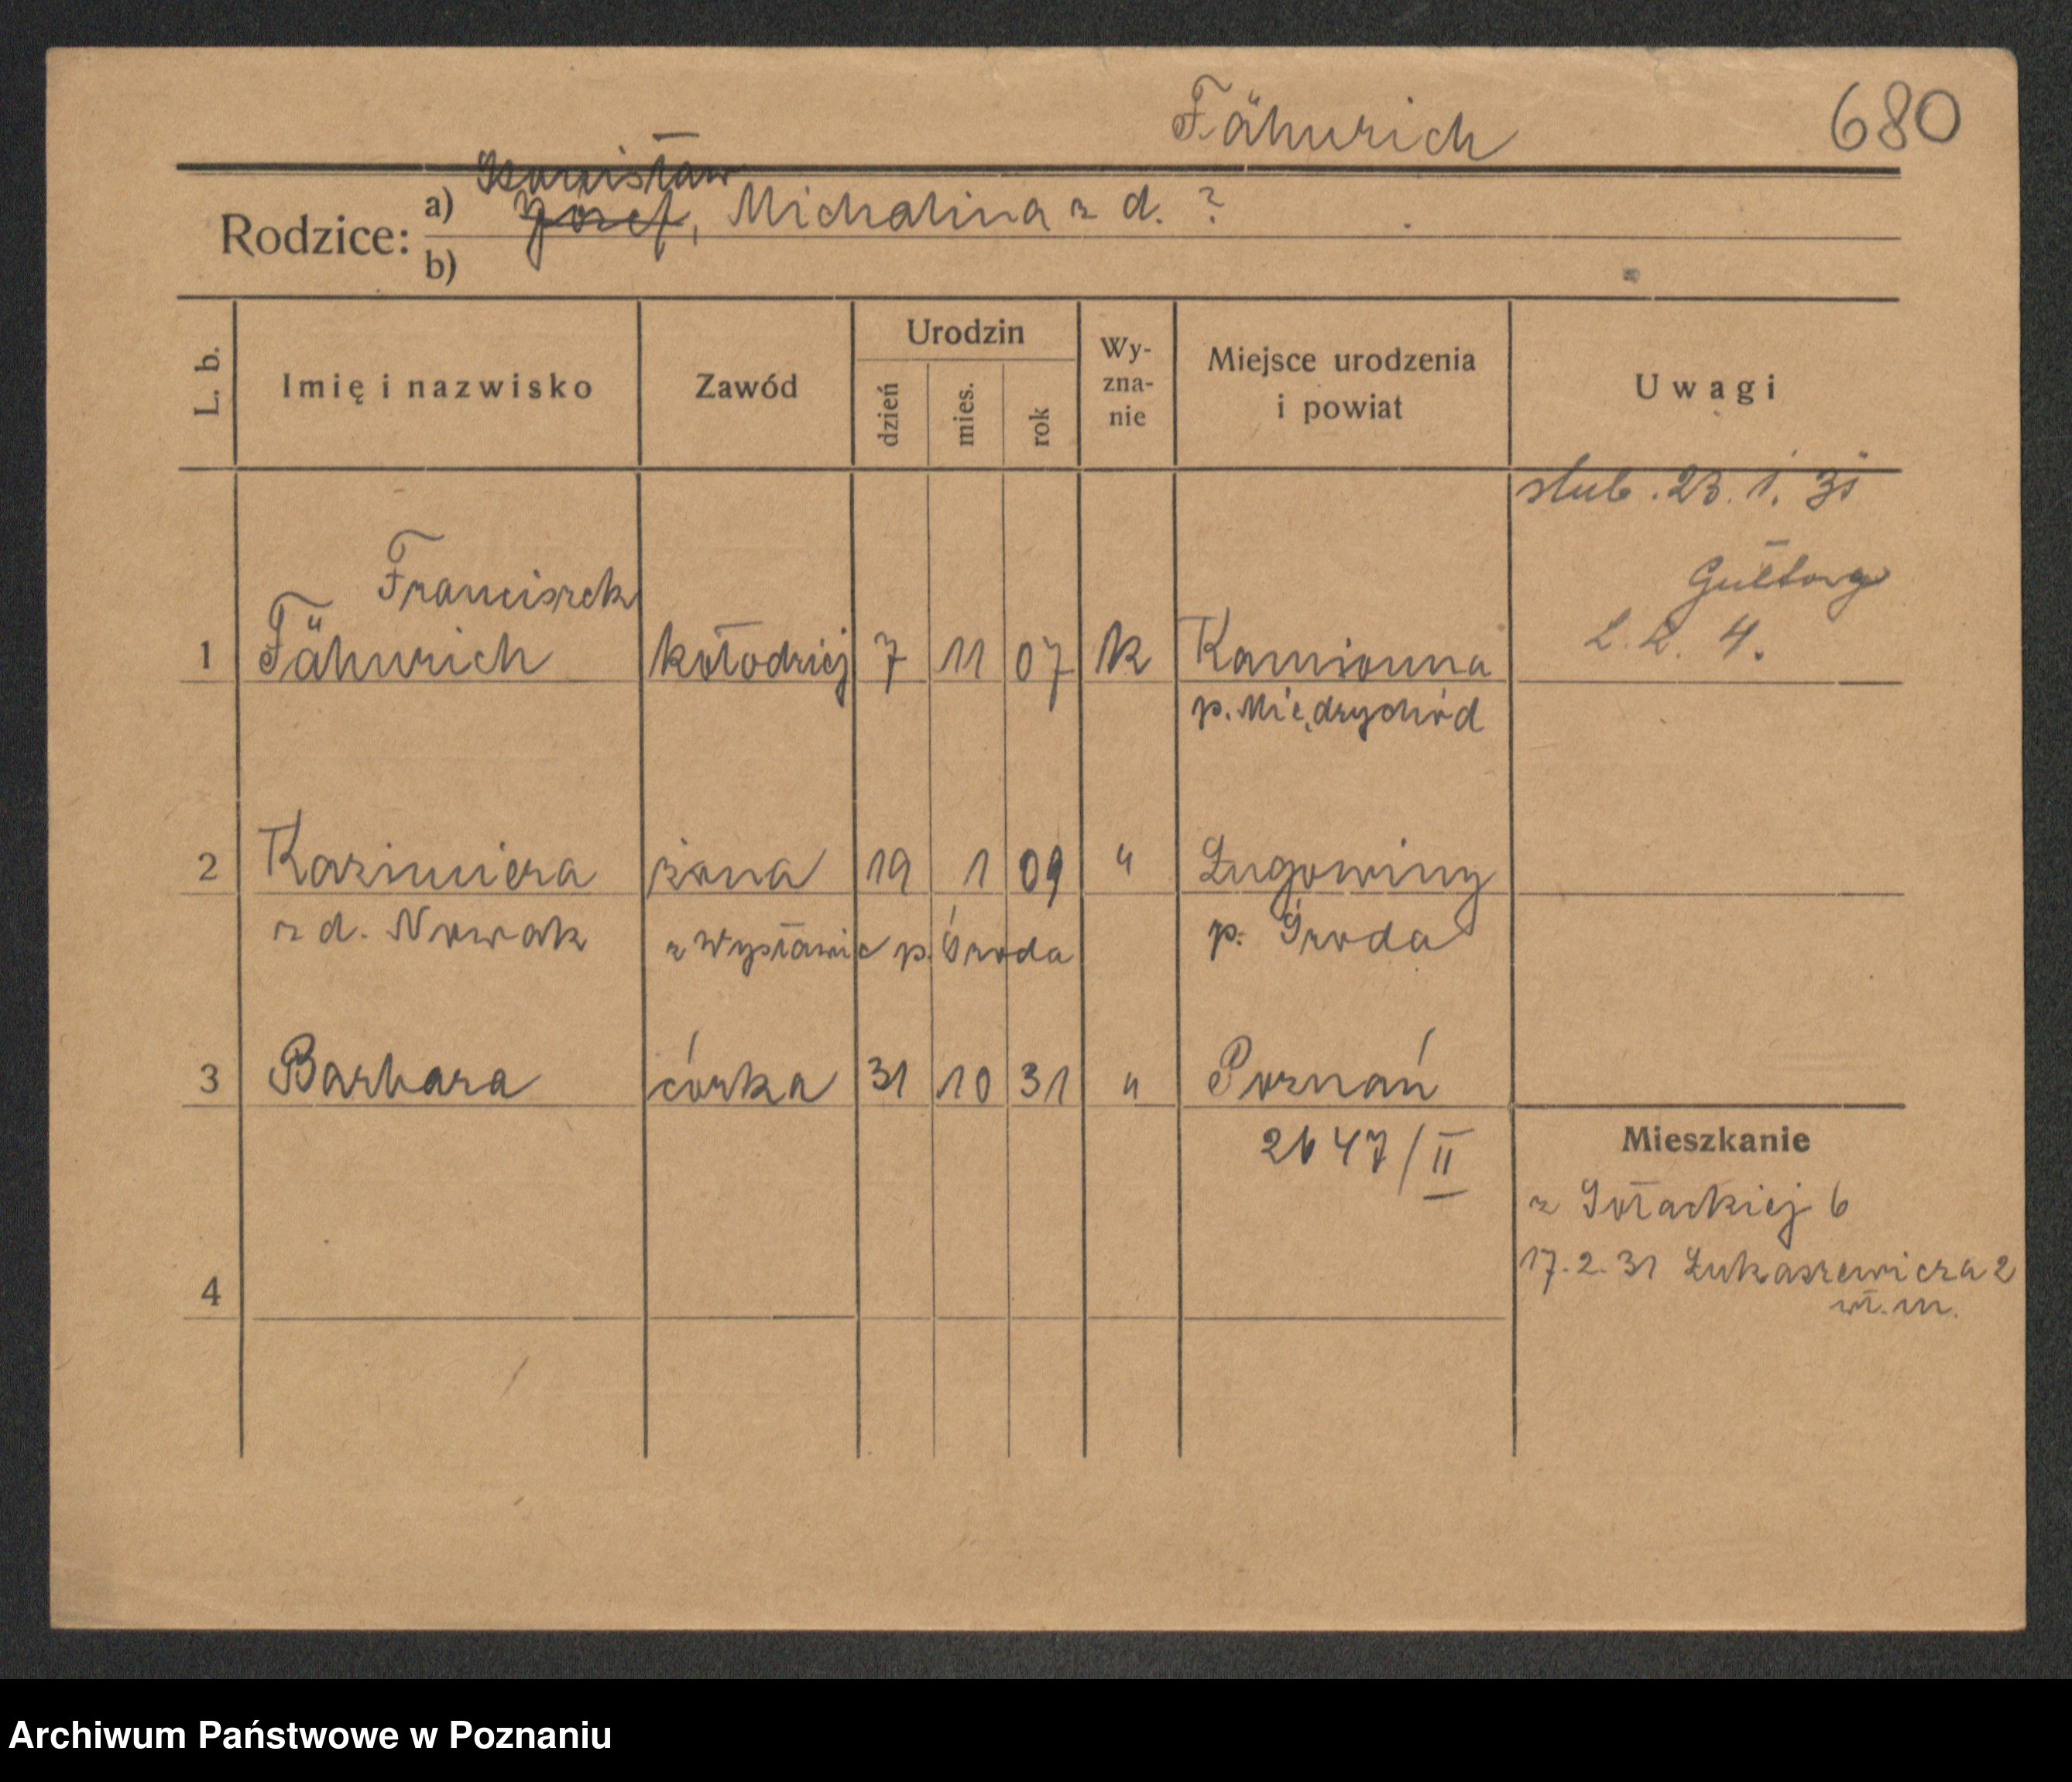 Fähnrich 680
Stanisław
Rodzice: a) Józef, Michalina z d. ?
b)
L. b. Imię i nazwisko Zawód Urodzin dzień mies. rok Wy-zna-nie Miejsce urodzenia i powiat Uwagi
ślub. 23. 1. 31
Franciszek Gułtowy
L. 4.
1 Fähnrich kołodziej 7 11 07 k Kamionna
p. Międzychód
2 Kazimiera żona 19 1 09 " Ługowiny
z d. Nowak z Wysławic p. Środa p. Środa
3 Barbara córka 31 10 31 " Poznań
2647/II Mieszkanie
z Sołackiej 6
17.2.31 Łukaszewicza 2
4 wł. m.
Archiwum Państwowe w Poznaniu